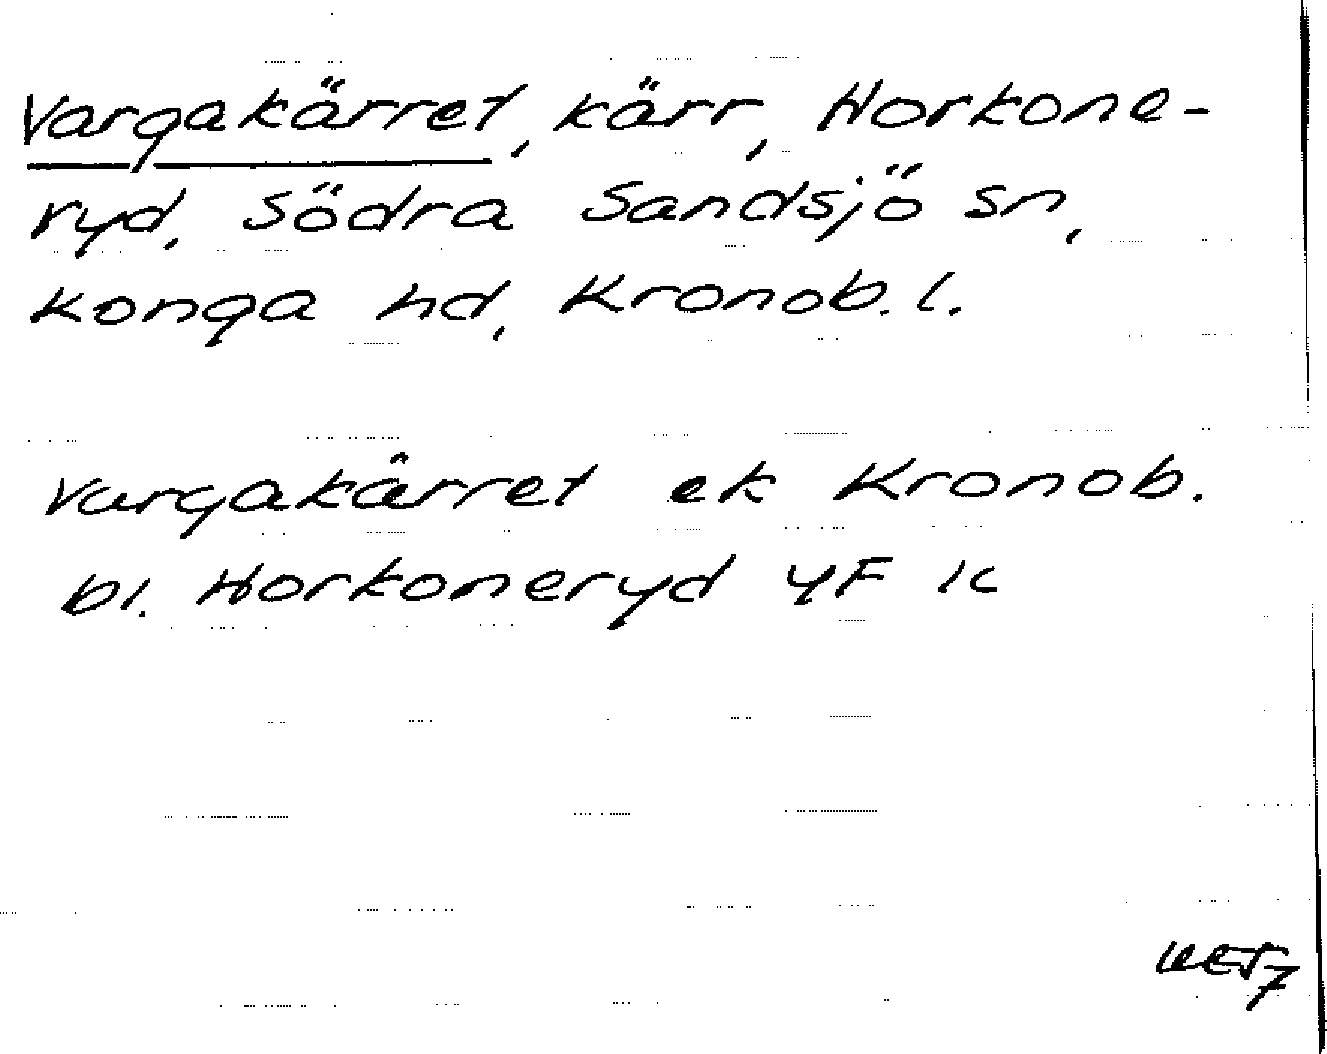 Vargakärret, kärr, Horkone-
ryd, Södra Sandsjö sn,
Konga hd, Kronob. l.
Vargakärret ek Kronob.
bl. Horkoneryd 4F 1c